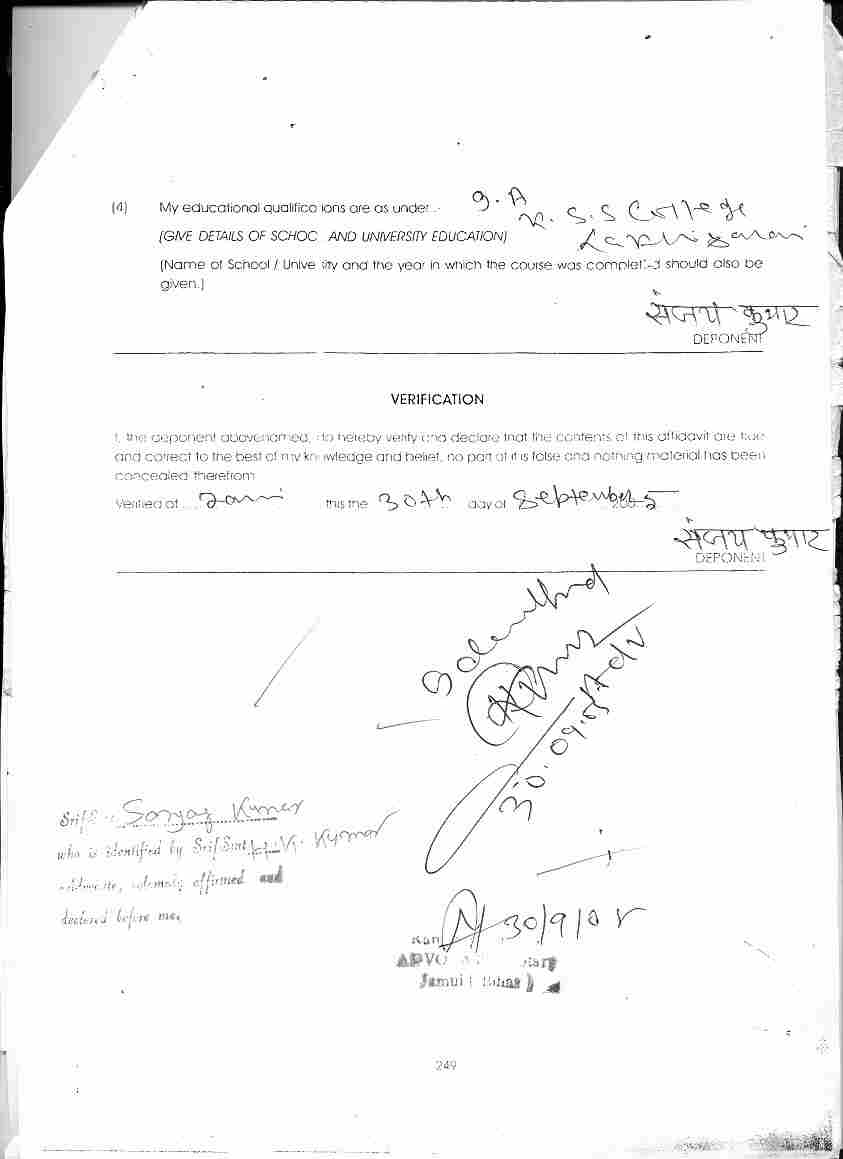 (4) My educational qualifica ions are as under :- I. A
K. S. S College
(GIVE DETAILS OF SCHOC AND UNIVERSITY EDUCATION) Lakhisarai
(Name of School / Unive sity and the year in which the course was completed should also be
given.)
संजय कुमार
DEPONENT
VERIFICATION
I, the deponent abovenamed, do hereby verify and declare that the contents of this affidavit are true
and correct to the best of my knowledge and belief, no part of it is false and nothing material has been
concealed therefrom
Verified at Jamui this the 30th day of September 2005
संजय कुमार
DEPONENT
Identified
Adv
30.09.05
Sri/S Sanjay Kumar
who is identified by Sri/Smt Kumar
advocate, solemnly affirmed and
declared before me.
30/9/05
Jamui ( Bihar )
249